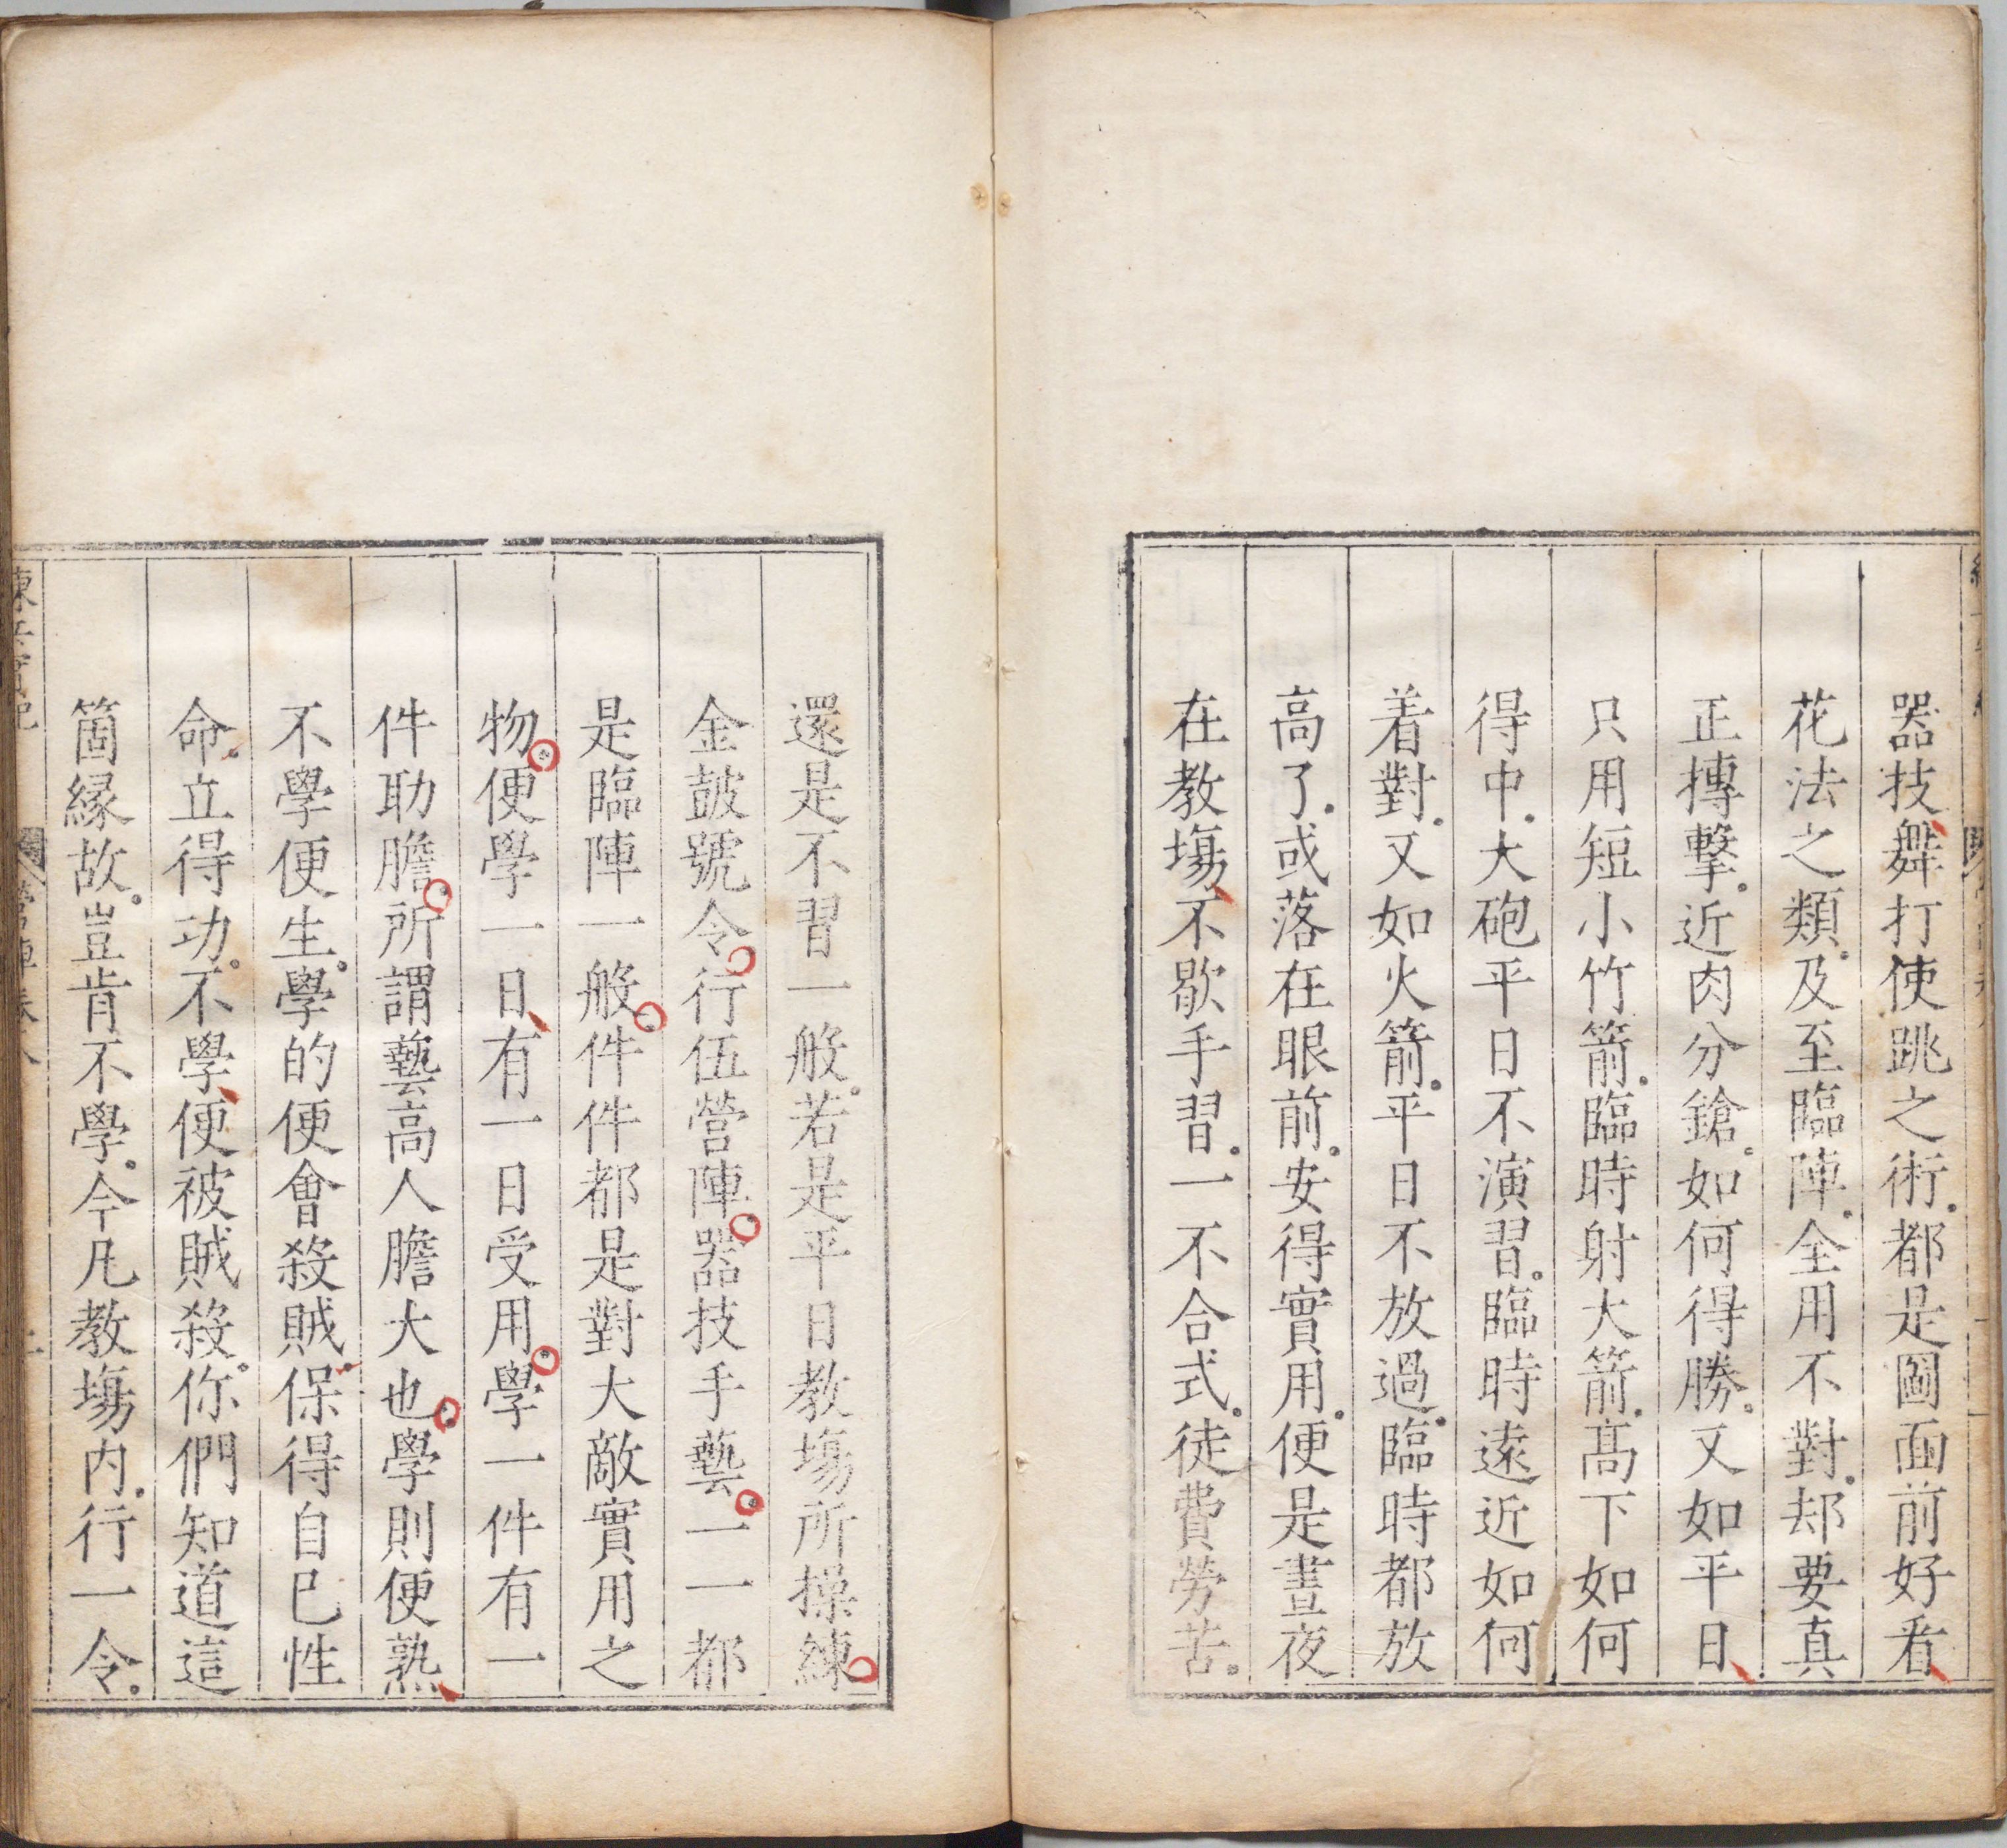 器技舞打使跳之術都是圖面前好看
花法之類及至臨陣全用不對却要真
正搏擊近肉分鎗如何得勝又如平日
只用短小竹箭臨時射大箭髙下如何
得中大砲平日不演習臨時遠近如何
着對又如火箭平日不放過臨時都放
高了或落在眼前安得實用便是晝夜
在教塲不歇手習一不合式徒費勞苦
還是不習一般若是平日教塲所操練
金鼓號令行伍營陣器技手藝一一都
是臨陣一般件件都是對大敵實用之
物便學一日有一日受用學一件有一
件助膽所謂藝高人膽大也學則便熟
不學便生學的便會殺賊保得自己性
命立得功不學便被賊殺你們知道這
箇縁故豈肯不學今凡教塲内行一令